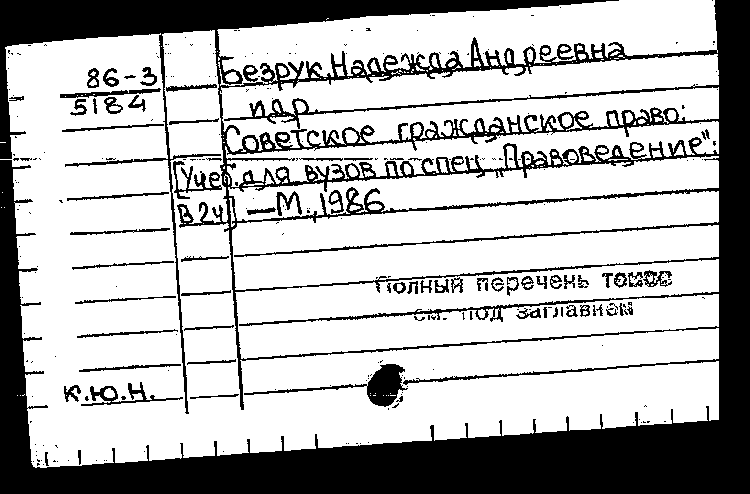 86-3
5184
Безрук, Надежда Андреевна
и др.
Советское гражданское право:
[Учеб. для вузов по спец. „Правоведение":
В 2 ч]. — М., 1986.
Полный перечень томов
см. под заглавием
К.Ю.Н.